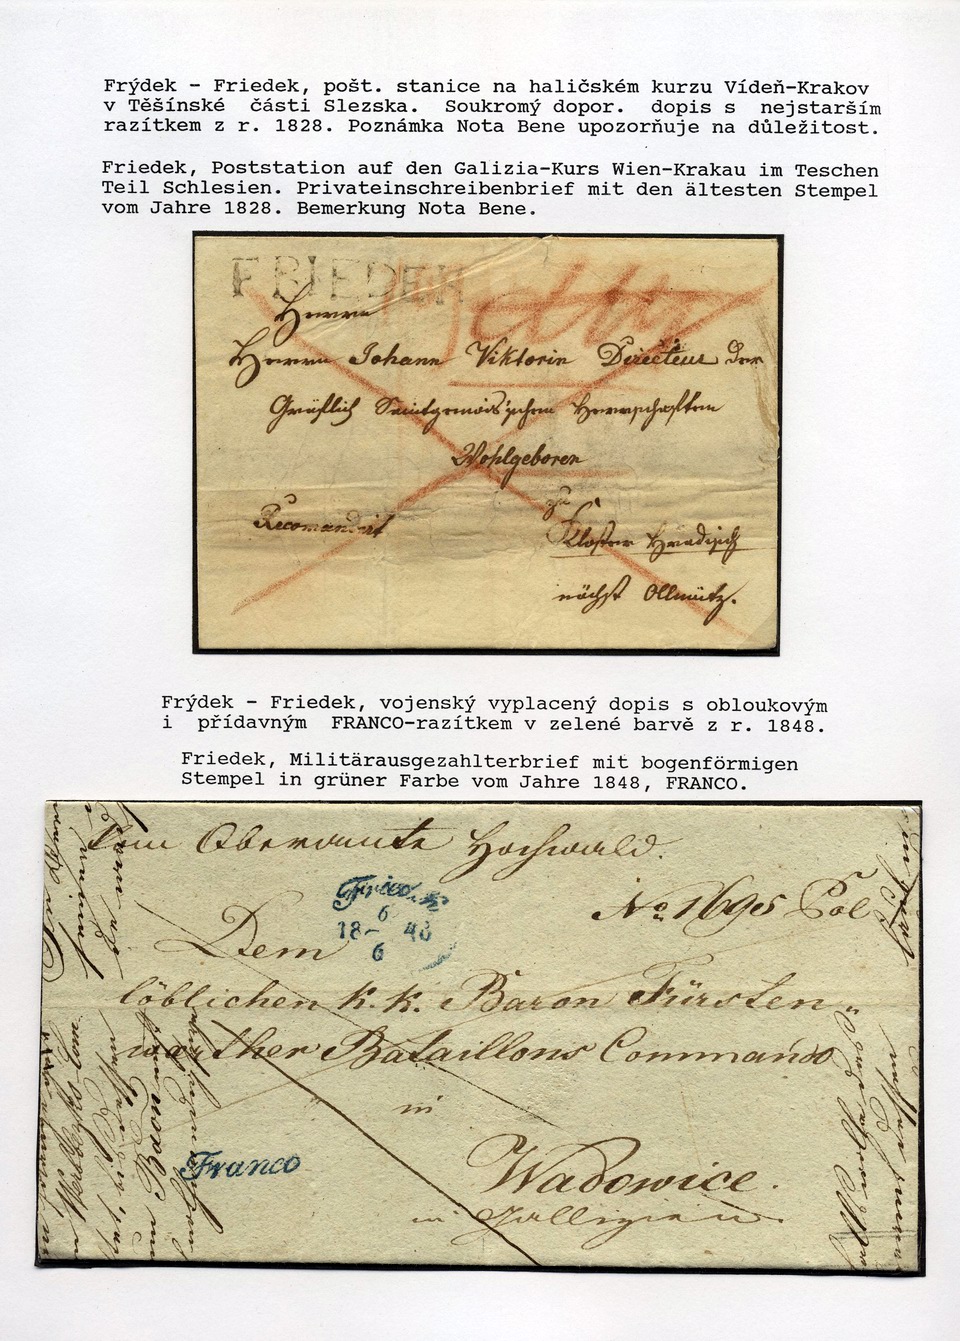 Frýdek – Friedek, pošt. stanice na haličském kurzu Vídeň-Krakov
v Těšínské části Slezska. Soukromý dopor. dopis s nejstarším
razítkem z r. 1828. Poznámka Nota Bene upozorňuje na důležitost.
Friedek, Poststation auf den Galizia-Kurs Wien-Krakau im Teschen
Teil Schlesien. Privateinschreibenbrief mit den ältesten Stempel
vom Jahre 1828. Bemerkung Nota Bene.
FRIEDEK
Herrn
Herrn Johann Viktorin Directeur der
Gräflich Saintgenois'schen Herrschaften
Wohlgeboren
zu
Recomandirt
Kloster Hradisch
nächst Ollmütz.
Frýdek – Friedek, vojenský vyplacený dopis s obloukovým
i přídavným FRANCO-razítkem v zelené barvě z r. 1848.
Friedek, Militärausgezahlterbrief mit bogenförmigen
Stempel in grüner Farbe vom Jahre 1848, FRANCO.
Vom Oberamte Hochwald.
Friedek
6
18– 48
6
No 1695 Pol
Dem
löblichen k. k. Baron Fürsten„
warther Bataillons Commando
in
Franco
Wadowice.
in Gallizien.